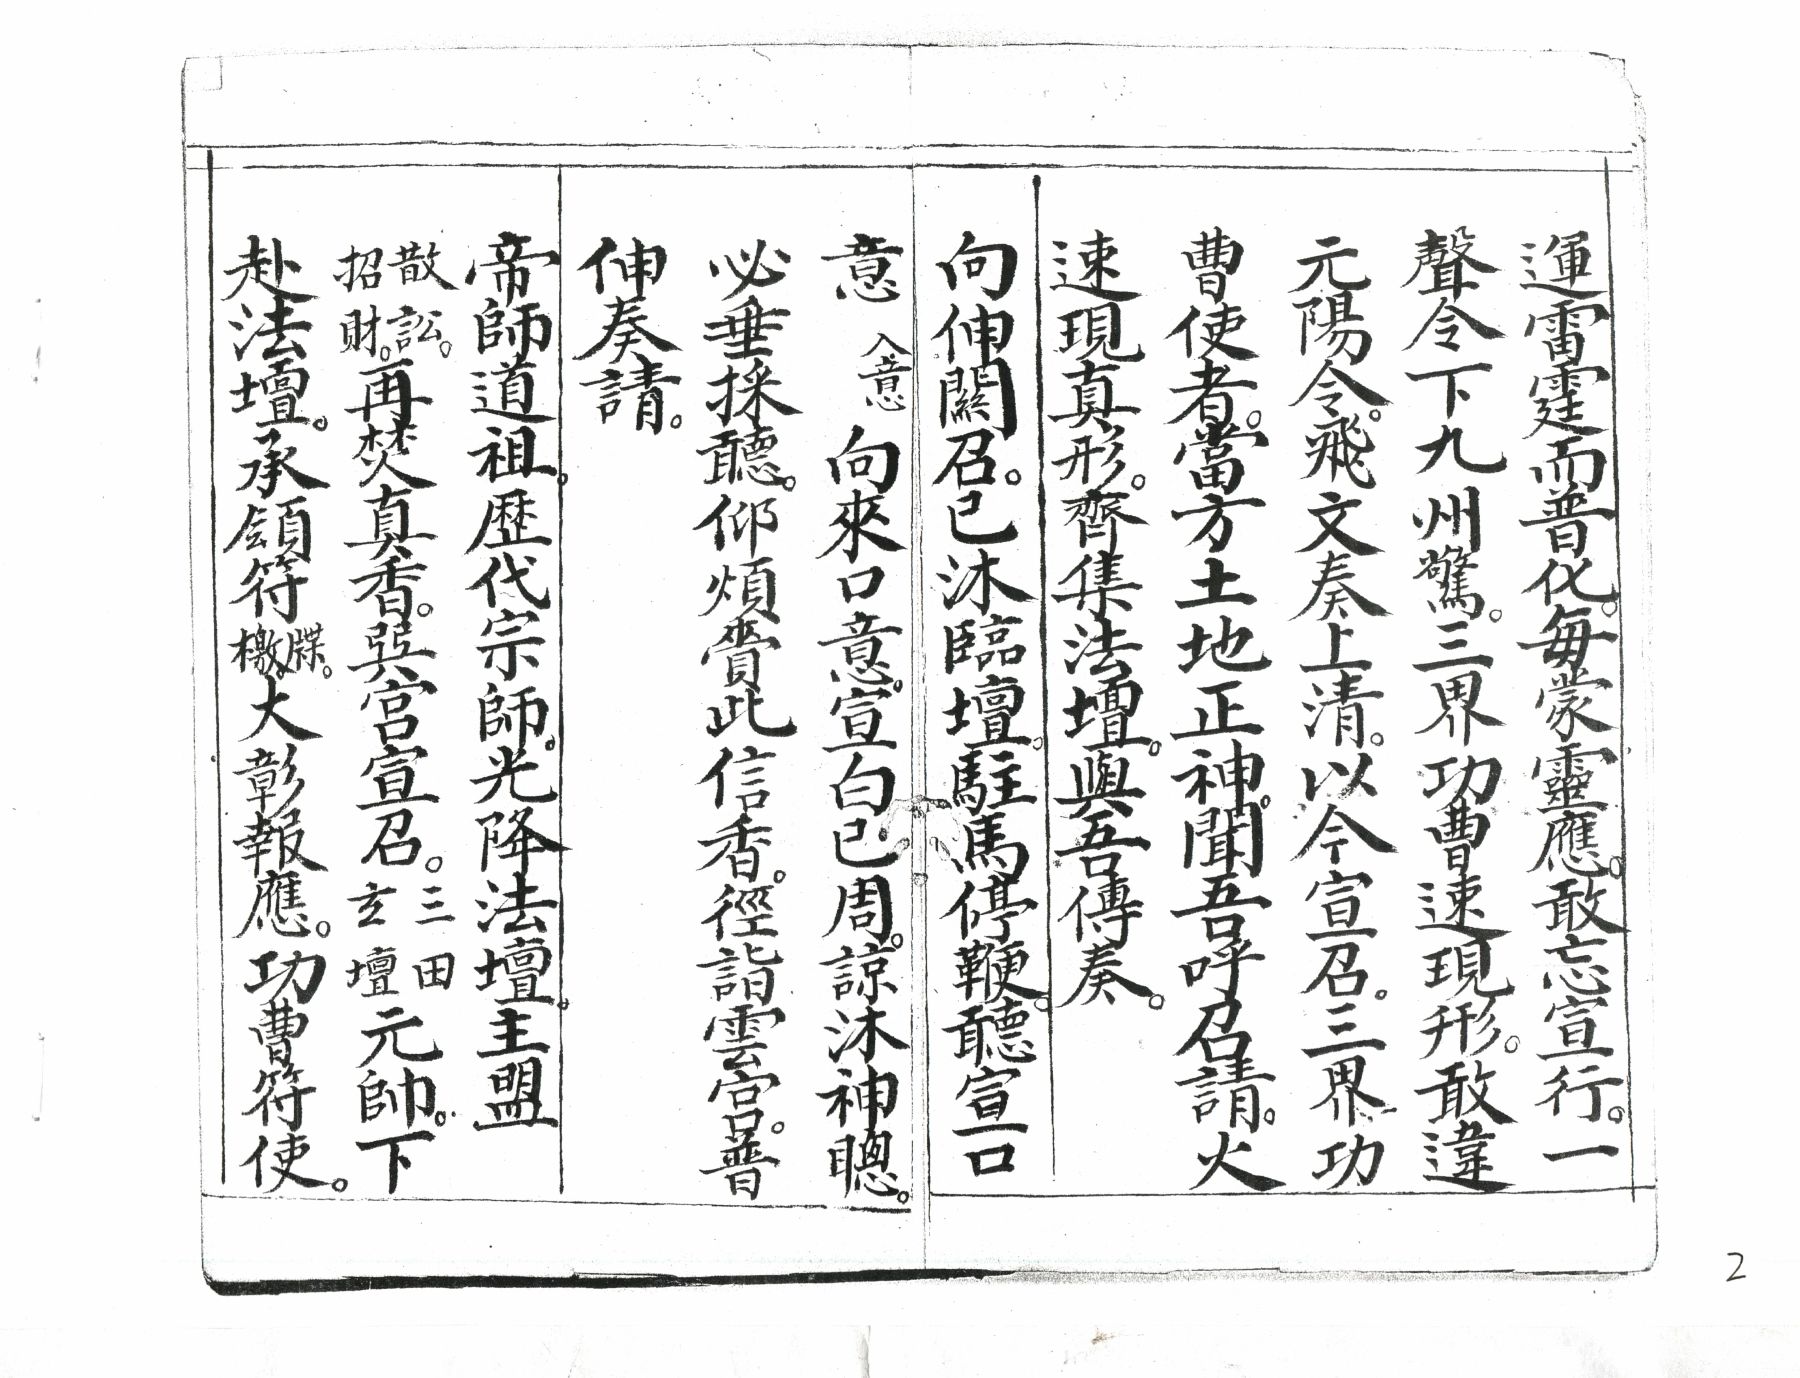 運雷霆而普化。每蒙靈應。敢忘宣行。一
聲令下九州驚。三界功曹速現形。敢違
元陽令。飛文奏上清。以今宣召。三界功
曹使者。當方土地正神。聞吾呼召請。火
速現真形。齊集法壇。與吾傳奏。
向伸關召。已沐臨壇。駐馬停鞭。聽宣口
意 入意 向來口意。宣白已周。諒沐神聰。
必垂採聽。仰煩賫此信香。徑詣雲宮。普
伸奏請。
帝師道祖。歷代宗師。光降法壇。主盟
散訟。招財。再焚真香。巽宮宣召。三田玄壇元帥。下
赴法壇。承領符牒。檄。大彰報應。功曹符使。
2